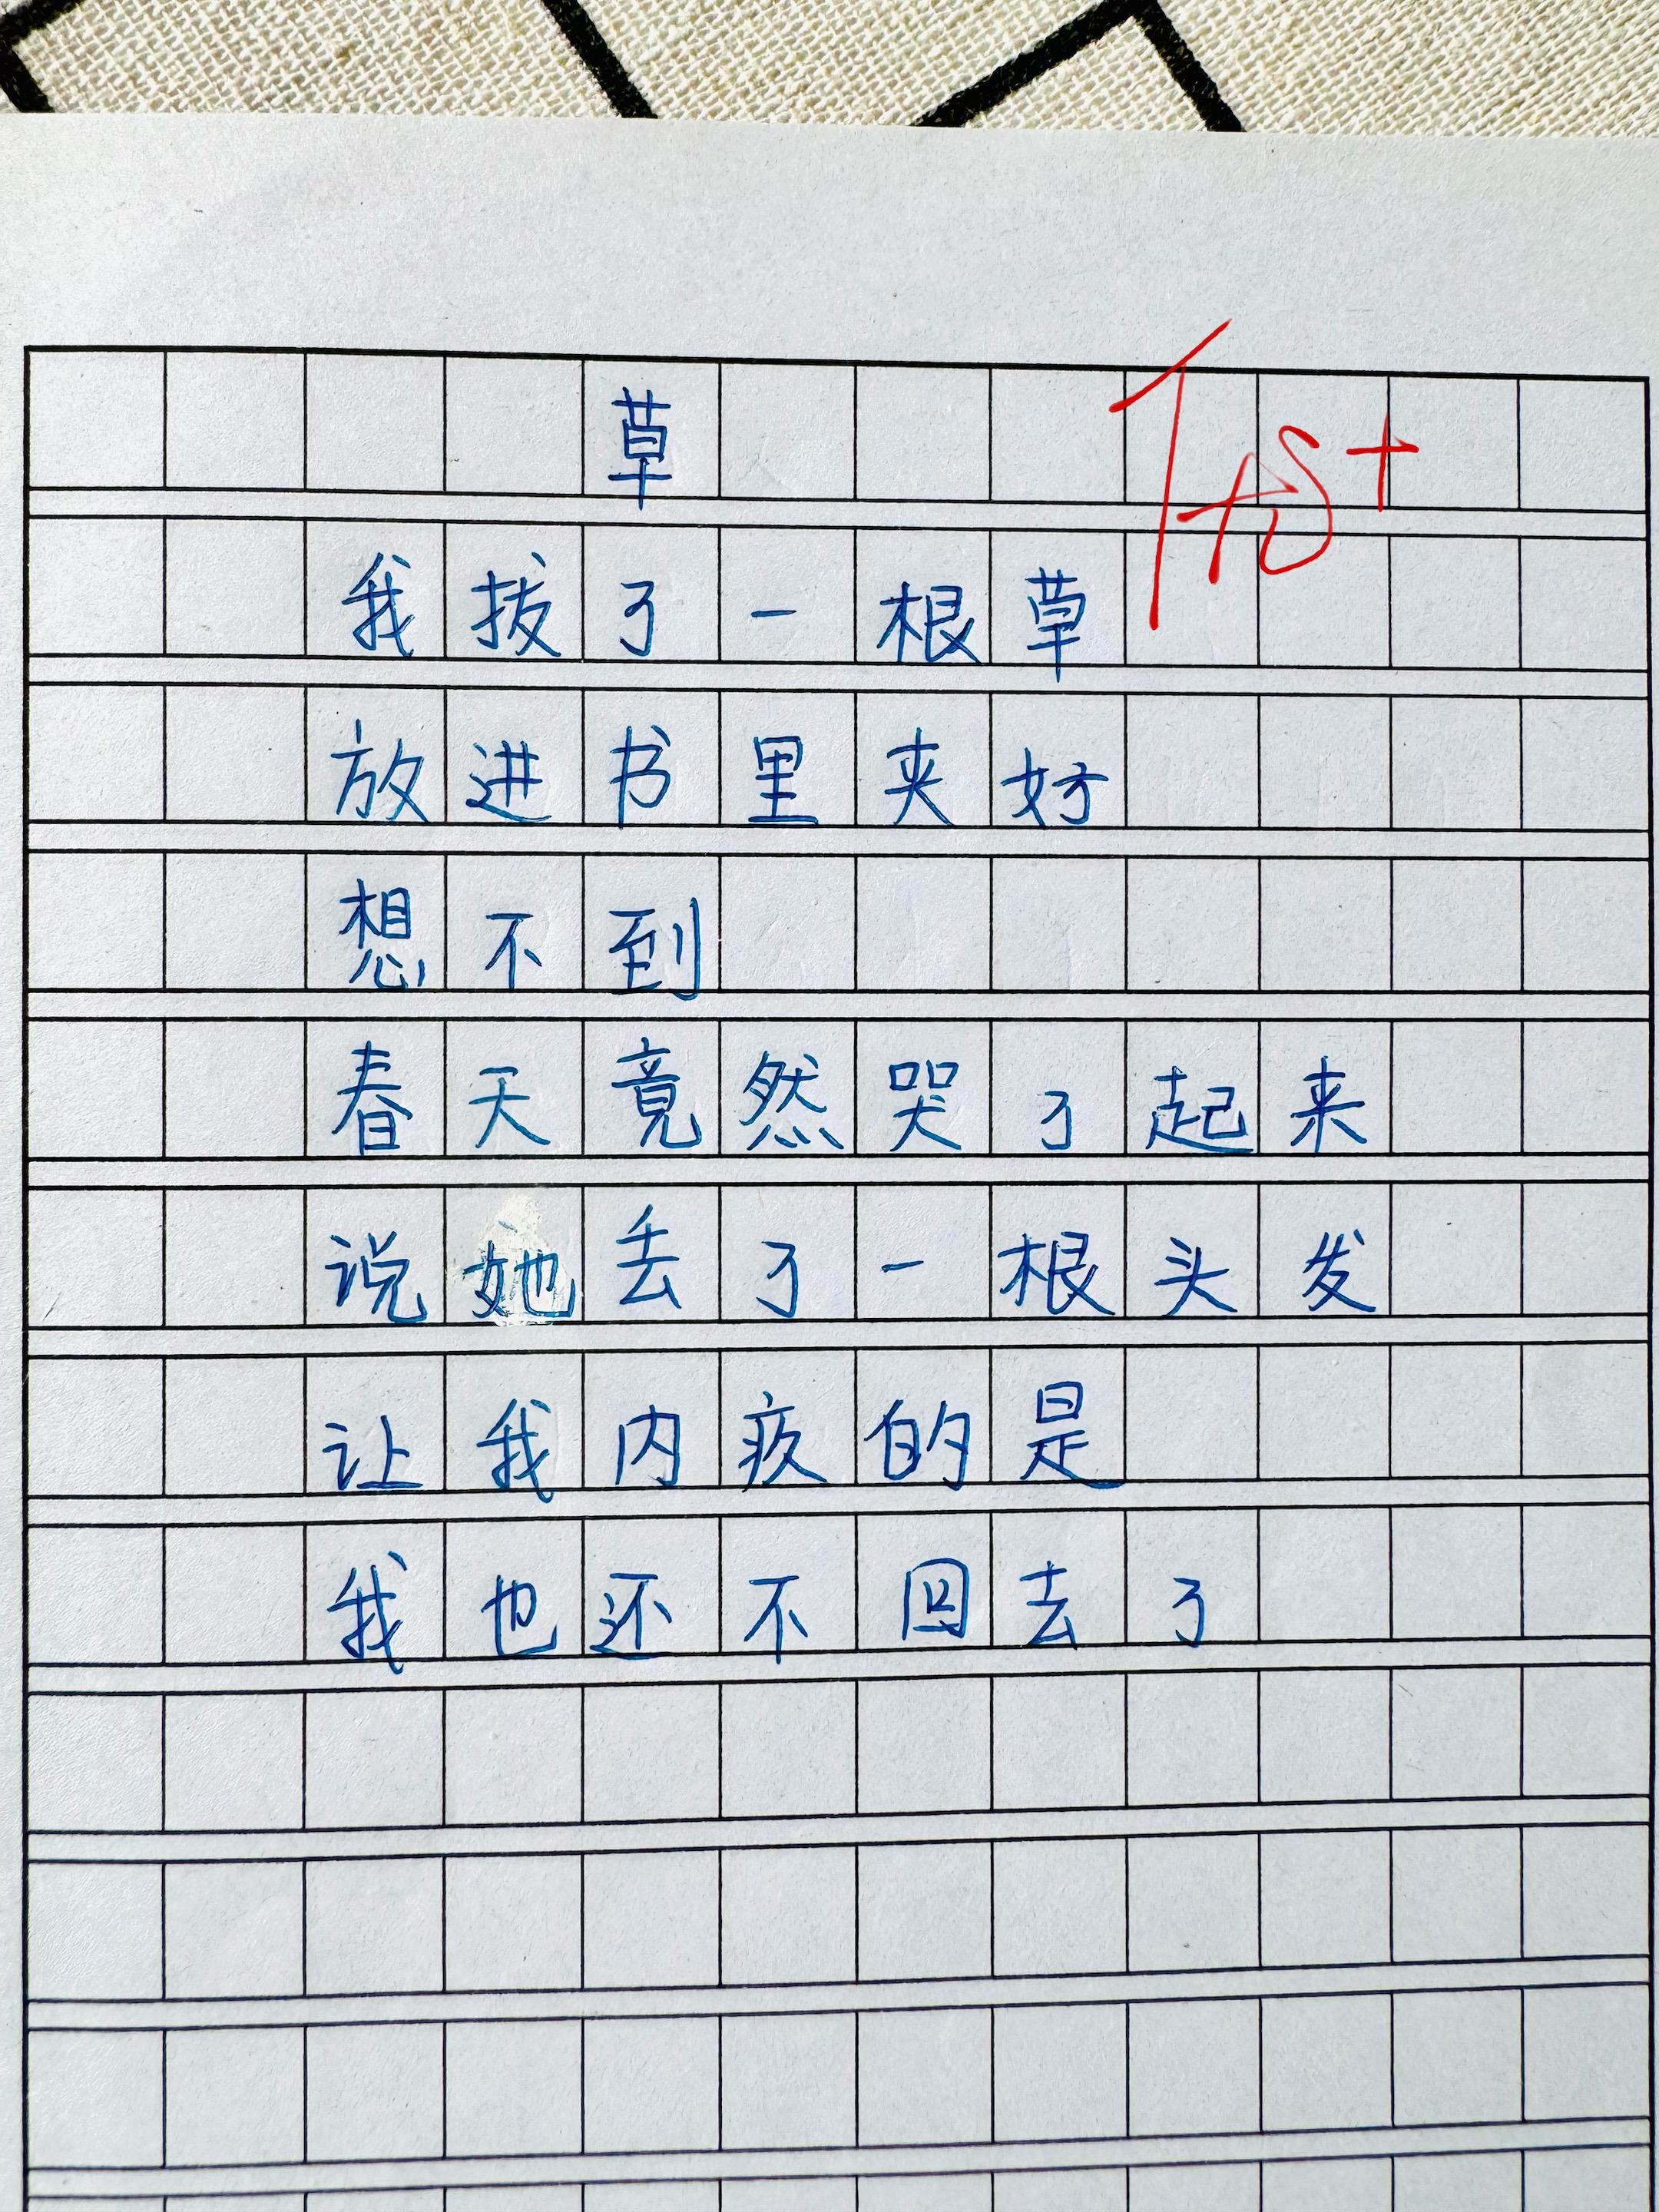 草
优+
我拔了一根草
放进书里夹好
想不到
春天竟然哭了起来
说她丢了一根头发
让我内疚的是
我也还不回去了